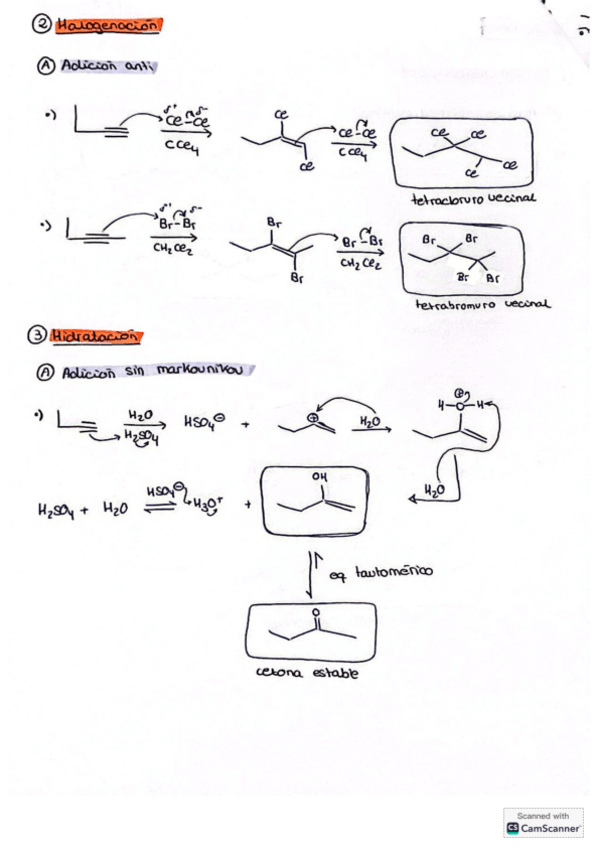 ② Halogenación
Ⓐ Adición anti
•) δ+ δ-
Cl-Cl
CCl4
Cl
Cl
Cl-Cl
CCl4
Cl Cl
Cl Cl
tetracloruro vecinal
•) δ+ δ-
Br-Br
CH2Cl2
Br
Br
Br-Br
CH2Cl2
Br Br
Br Br
tetrabromuro vecinal
③ Hidratación
Ⓐ Adición sin markovnikov
•) H2O
H2SO4
HSO4⊖ +
⊕
H2O
⊕
H-O-H
H2O
H2SO4 + H2O ⇌ HSO4⊖ H3O+ +
OH
eq tautomérico
O
cetona estable
Scanned with
CS CamScanner